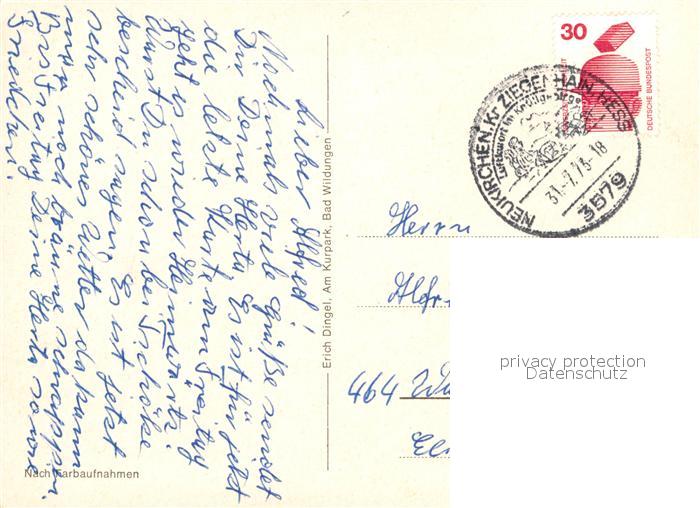 Lieber Alfred!
Nochmals viele Grüße sendet
Dir Deine Herta. Es ist für jetzt
die letzte Karte am Freitag
geht es wieder Heimwärts.
kannst Du schon bei Tischöke
bescheid sagen. Es ist jetzt
sehr schönes Wetter da kann
man noch bräune schnappen.
Bis Freitag Deine Herta sowie
Friedchen.
Nach Farbaufnahmen
Erich Dingel, Am Kurpark, Bad Wildungen
30
DEUTSCHE BUNDESPOST
NEUKIRCHEN, KR ZIEGENHAIN, HESS
Luftkurort im Knüllgebirge
31.-7.73-18
3579
Herrn
Alfr
464
privacy protection
Datenschutz